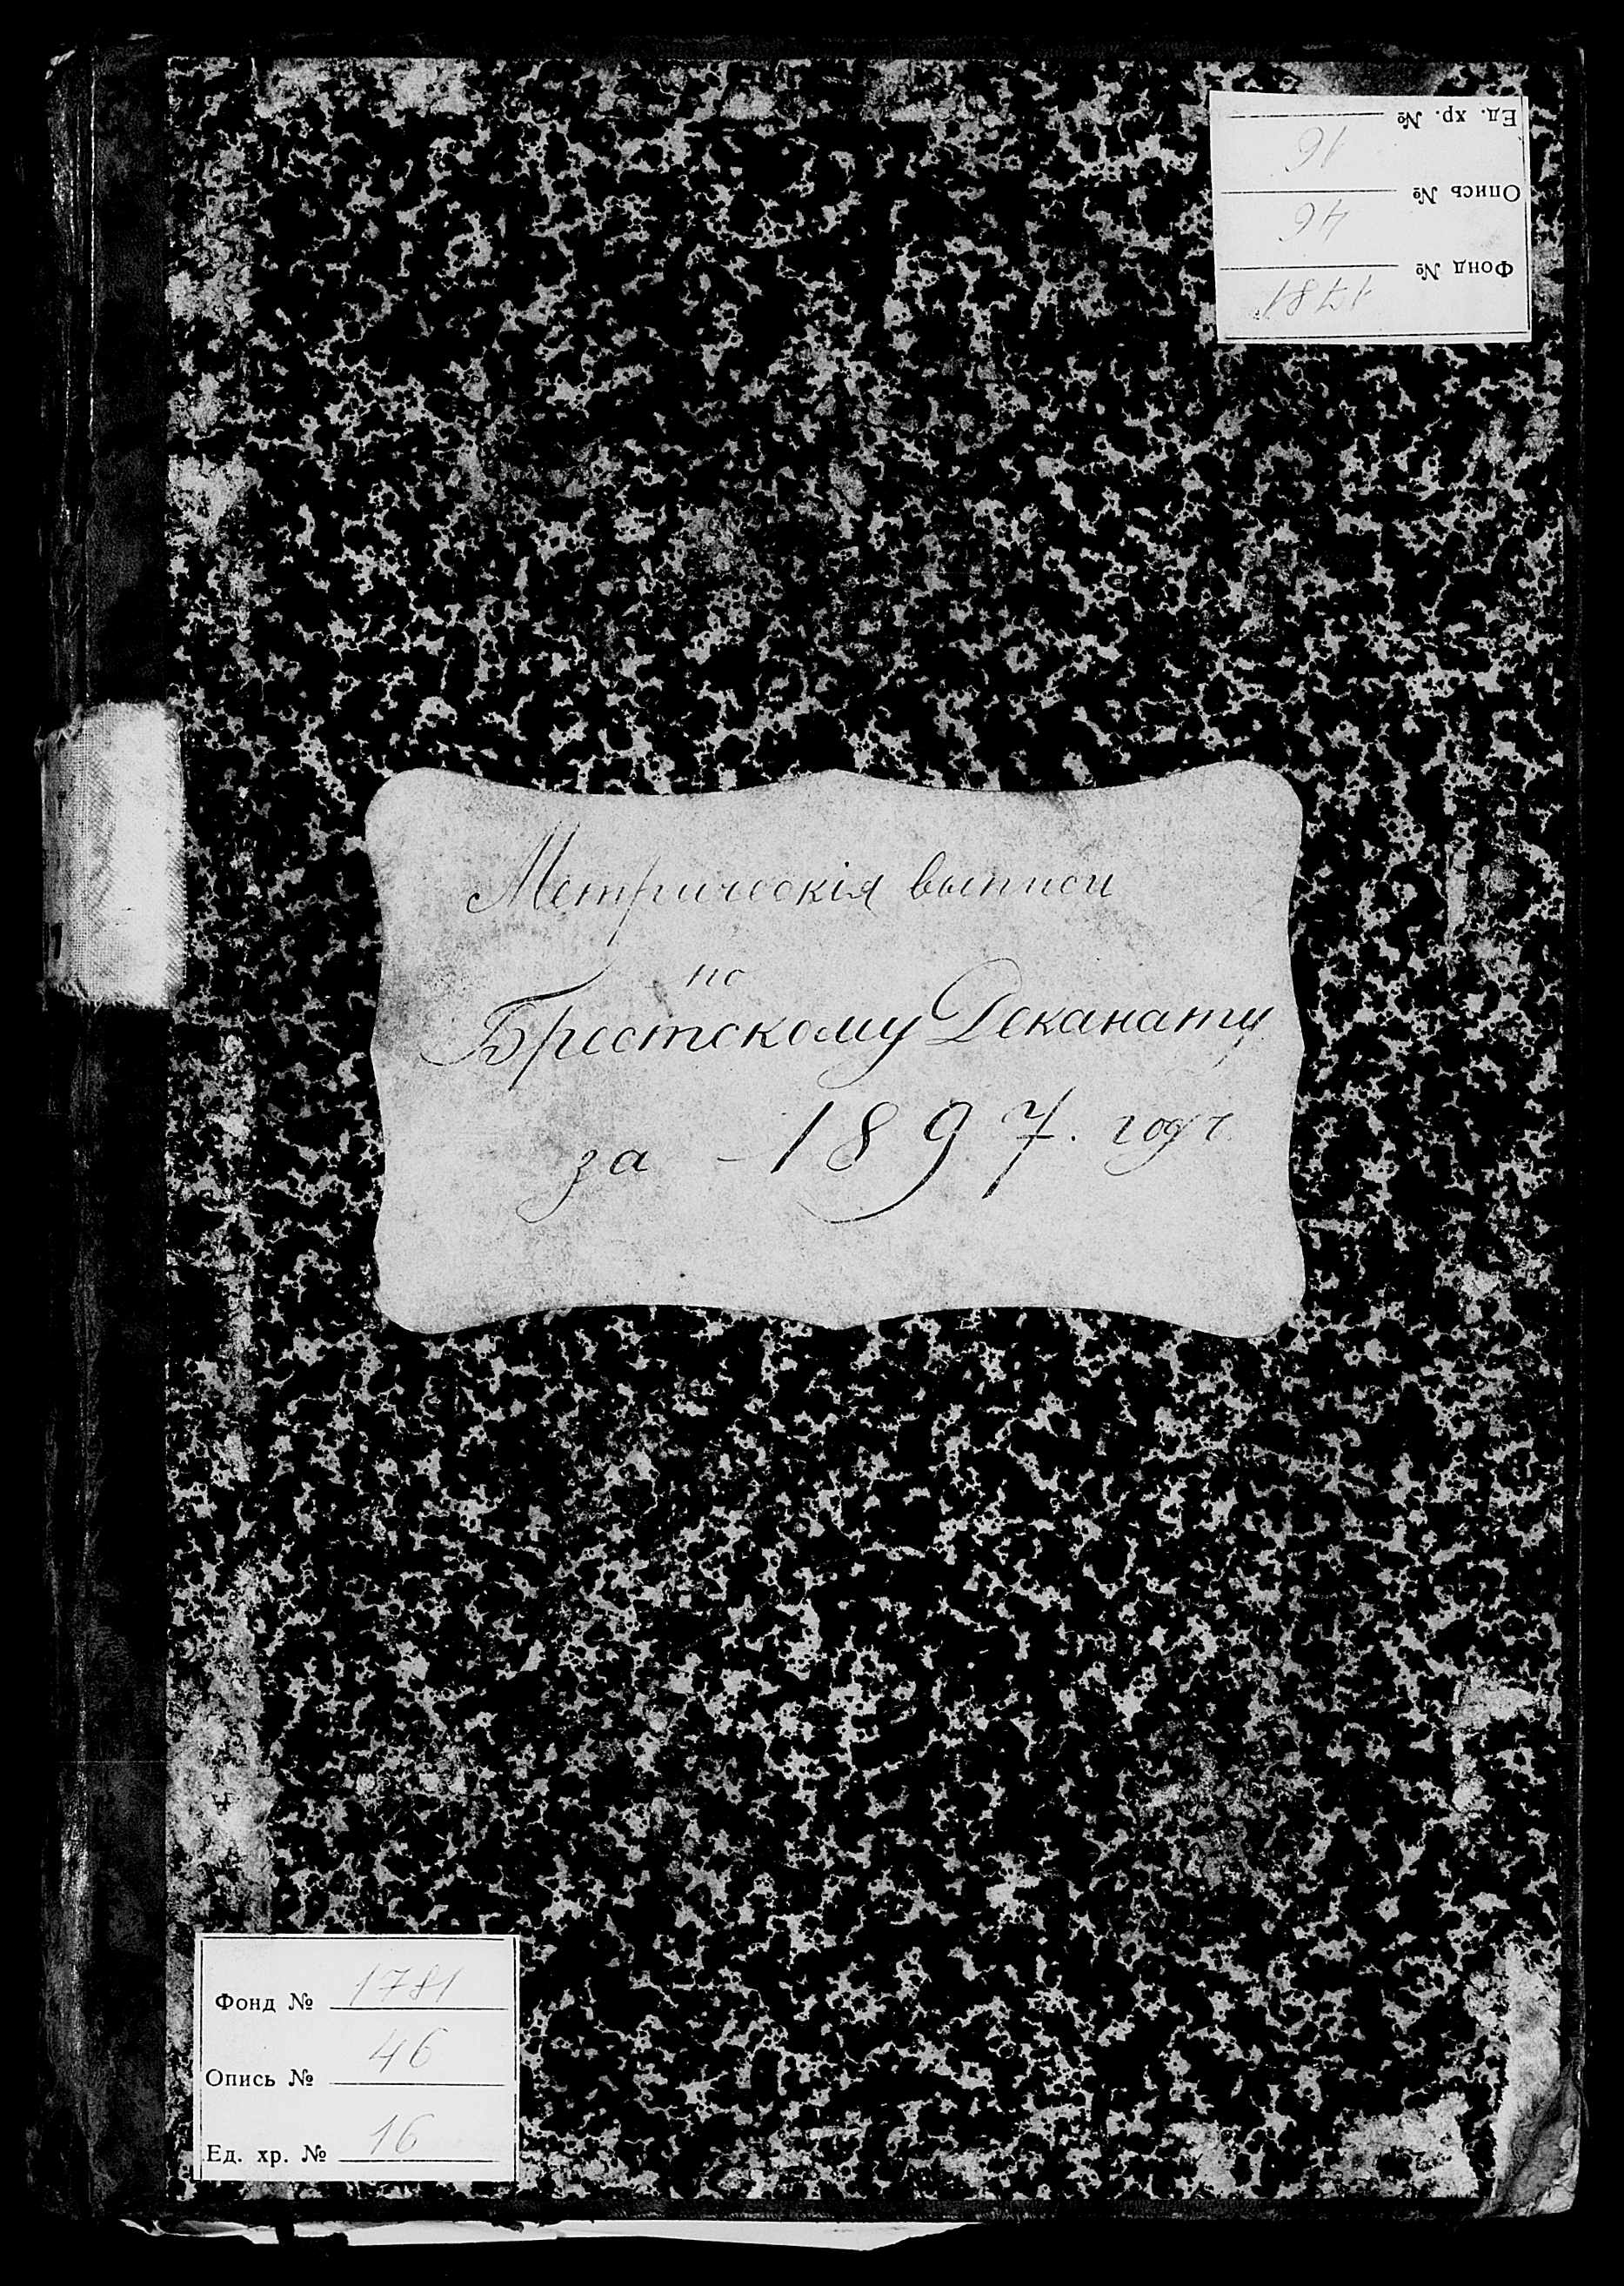 Ед. хр. № 16
Опись № 46
Фонд № 1781
Метрическія выписи
по
Брестскому Деканату
за 1897. годъ
Фонд № 1781
Опись № 46
Ед. хр. № 16